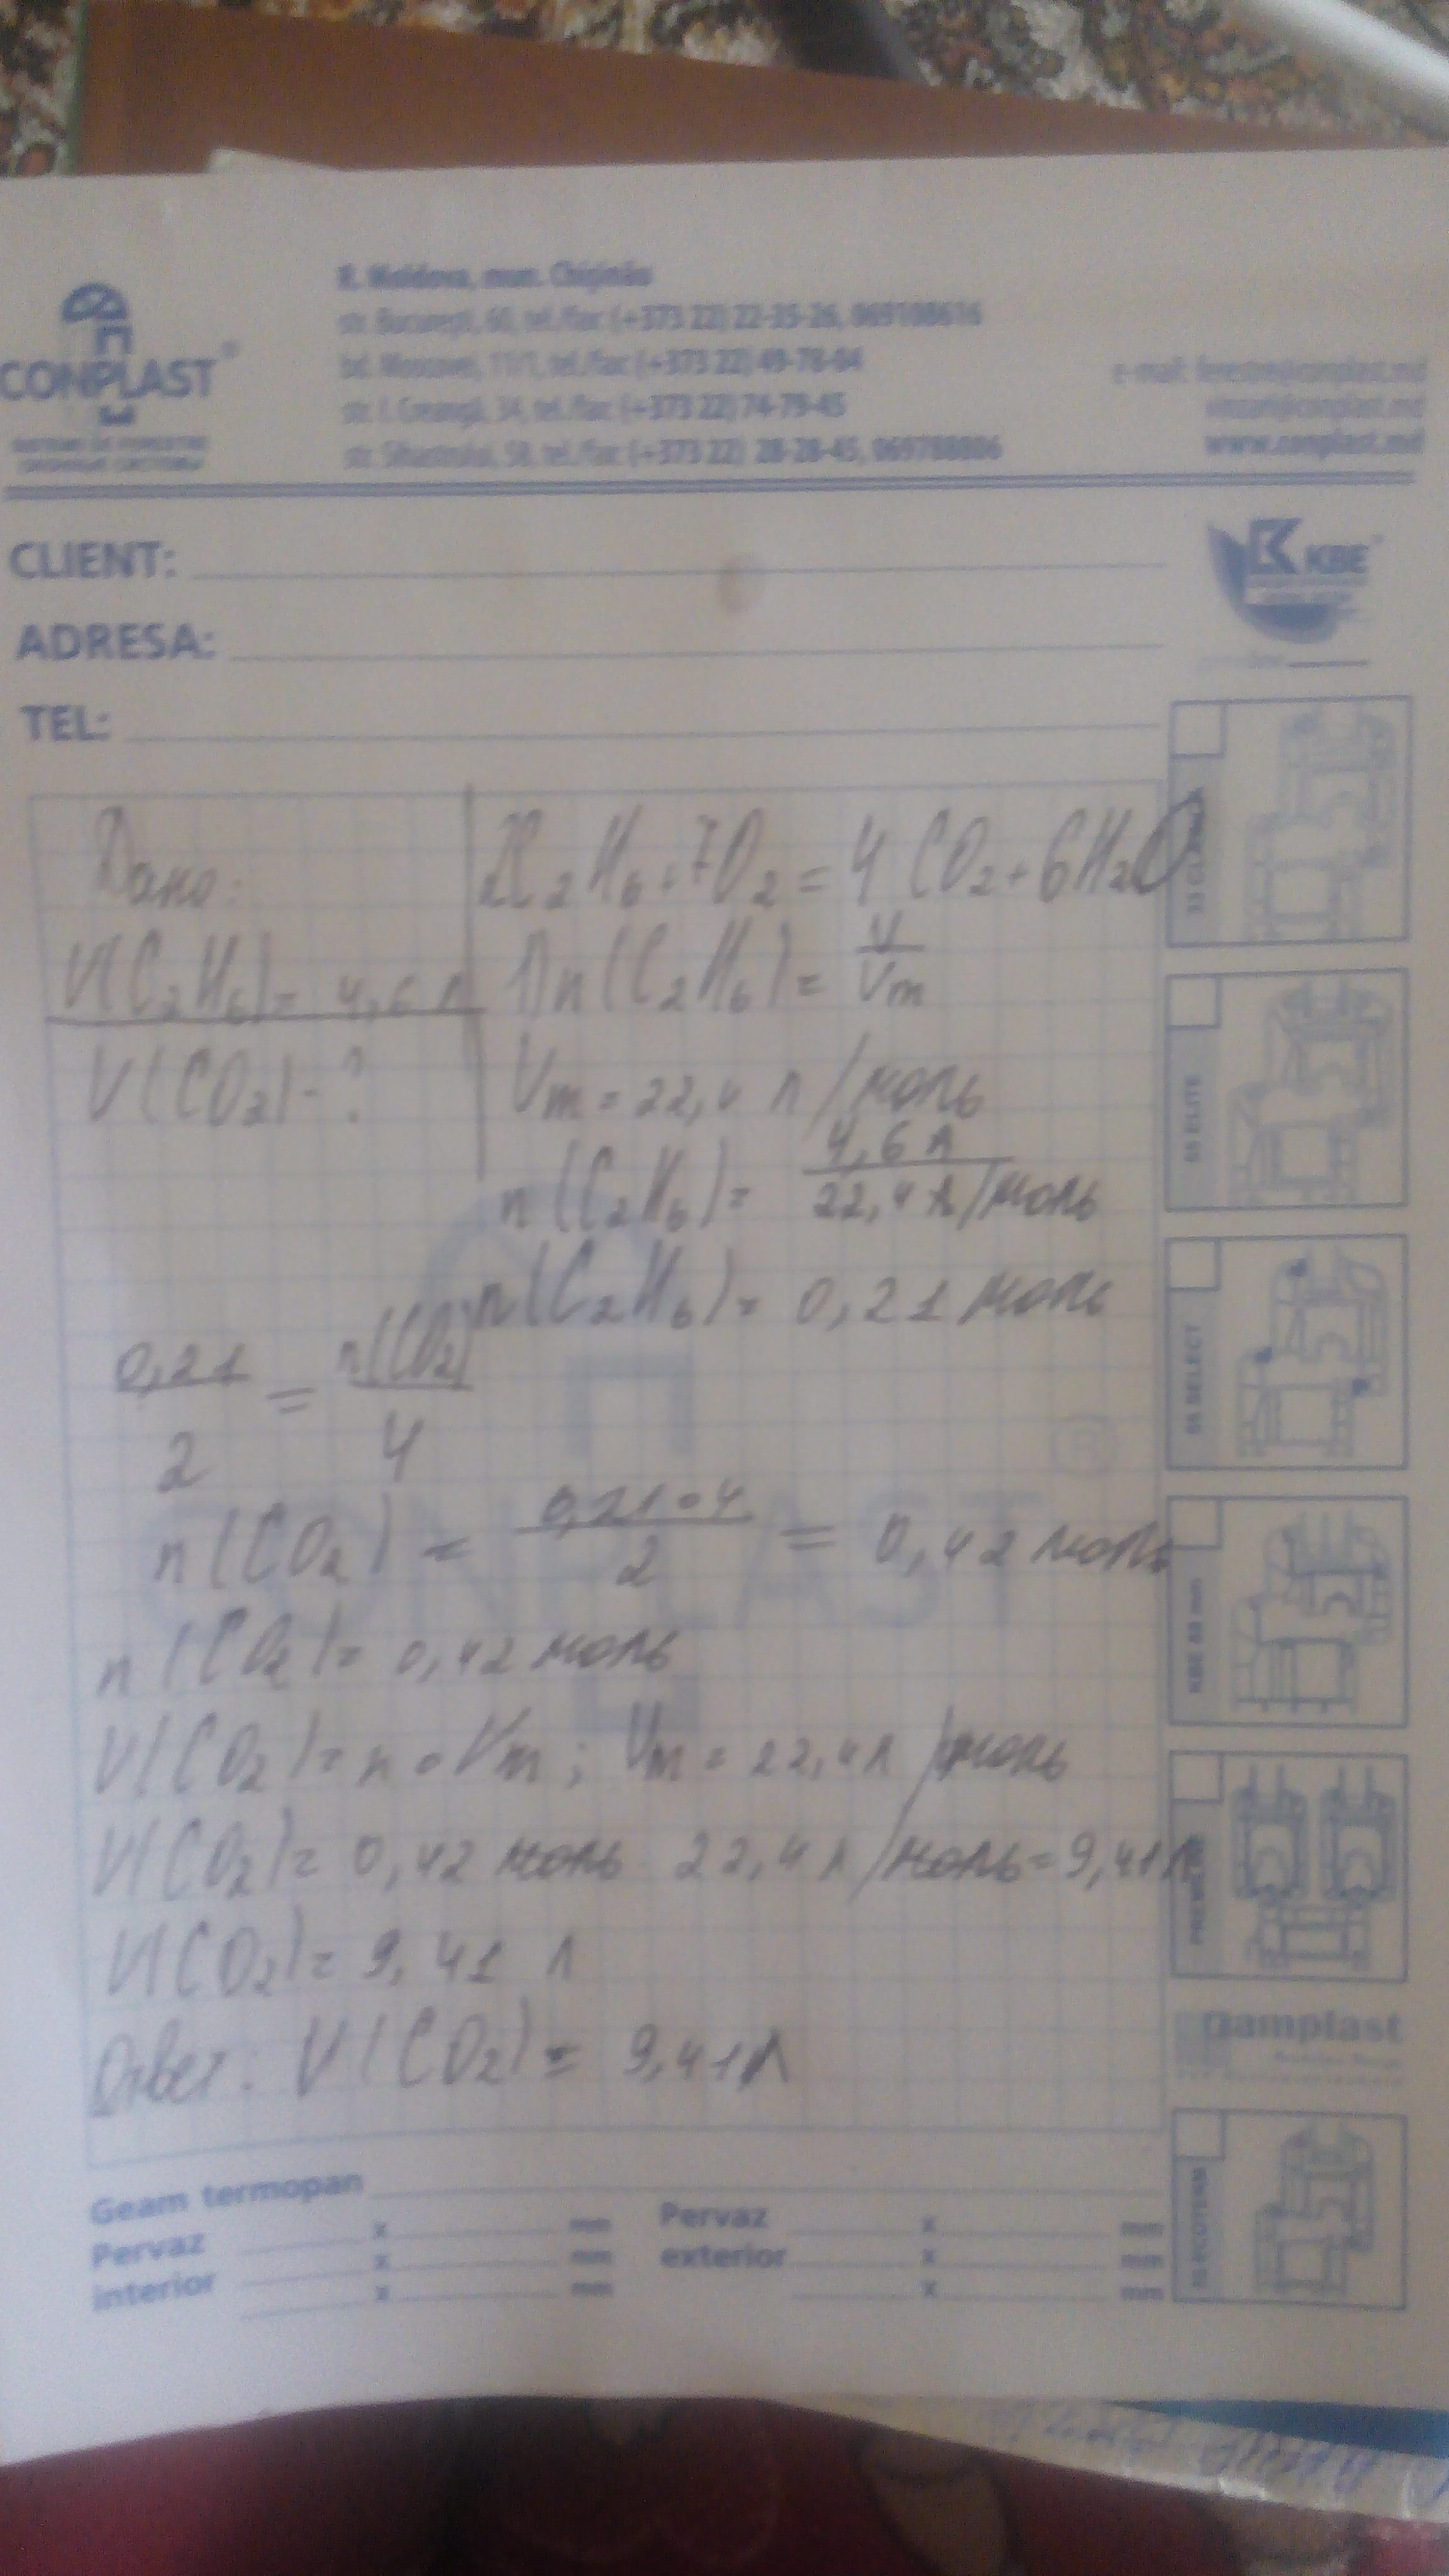 R. Moldova, mun. Chișinău
str. București, 60, tel./fax: (+373 22) 22-35-26, 069108616
bd. Moscovei, 11/1, tel./fax: (+373 22) 49-78-64
str. I. Creangă, 34, tel./fax: (+373 22) 74-79-45
str. Sihastrului, tel./fax: (+373 22) 28-28-45, 069788886
CONPLAST
e-mail:
www.conplast.md
CLIENT:
ADRESA:
TEL:
KBE
Дано:
V(C₂H₆) = 4,6 л
V(CO₂) - ?
2C₂H₆ + 7O₂ = 4CO₂ + 6H₂O
1) n(C₂H₆) = V/Vm
Vm = 22,4 л/моль
n(C₂H₆) = 4,6 л / 22,4 л/моль
n(C₂H₆) = 0,21 моль
0,21/2 = n(CO₂)/4
n(CO₂) = 0,21•4/2 = 0,42 моль
n(CO₂) = 0,42 моль
V(CO₂) = n•Vm; Vm = 22,4 л/моль
V(CO₂) = 0,42 моль · 22,4 л/моль = 9,41 л
V(CO₂) = 9,41 л
Ответ: V(CO₂) = 9,41 л
CONPLAST
ELITE
SELECT
KBE
Geam termopan
Pervaz interior x mm
x mm
x mm
Pervaz exterior x mm
x mm
x mm